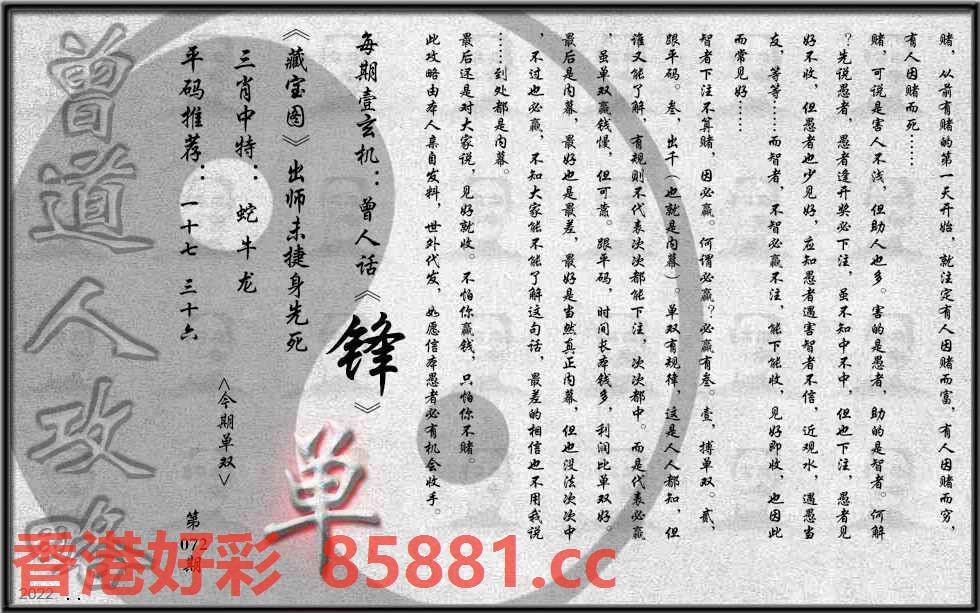 赌，从前有赌的第一天开始，就注定有人因赌而富，有人因赌而穷，
有人因赌而死……
赌，可说是害人不浅，但助人也多。害的是愚者，助的是智者。何解
？先说愚者，愚者逢开奖必下注，虽不知中不中，但也下注，愚者见
好不收，但愚者也少见好，应知愚者遇害智者不信，近观水，遇愚当
友，等等……而智者，不智必赢不注，能下能收，见好即收，也因此
而常见好……
智者下注不算赌，因必赢。何谓必赢？必赢有叁。壹，搏单双。贰，
跟平码。叁，出千（也就是内幕）。单双有规律，这是人人都知，但
谁又能了解，有规则不代表次次都能下注，次次都中。而是代表必赢
，虽单双赢钱慢，但可靠。跟平码，时间长本钱多，利润比单双好。
最后是内幕，最好也是最差，最好是当然真正内幕，但也没法次次中
，不过也必赢，不知大家能不能了解这句话，最差的相信也不用我说
……到处都是内幕。
最后还是对大家说，见好就收。不怕你赢钱，只怕你不赌。
此攻略由本人亲自发料，世外代发，如愿信本愚者必有机会收手。
每期壹玄机：曾人话《锋》
《藏宝图》出师未捷身先死
三肖中特：蛇牛龙
平码推荐：一十七 三十六
<今期单双>
单
第
072
期
曾道人攻略
香港好彩 85881.cc
2022